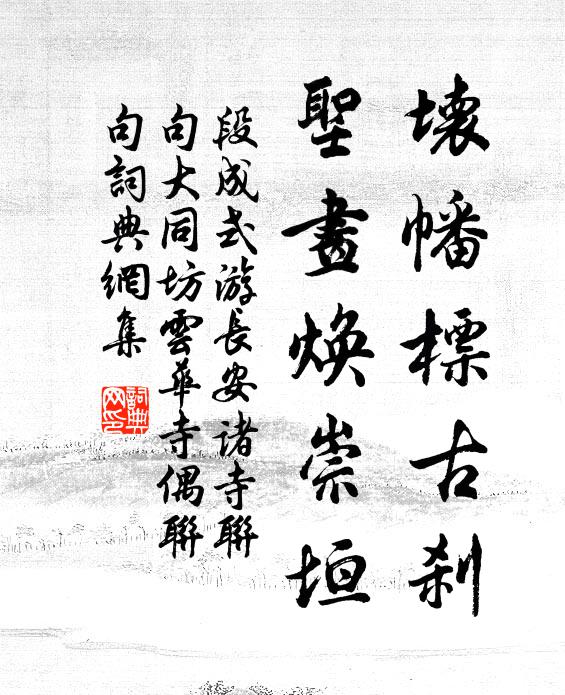 壞幡標古剎
聖畫煥崇垣
段成式游長安諸寺聯
句大同坊雲華寺偶聯
句詞典網集
詞典
网印